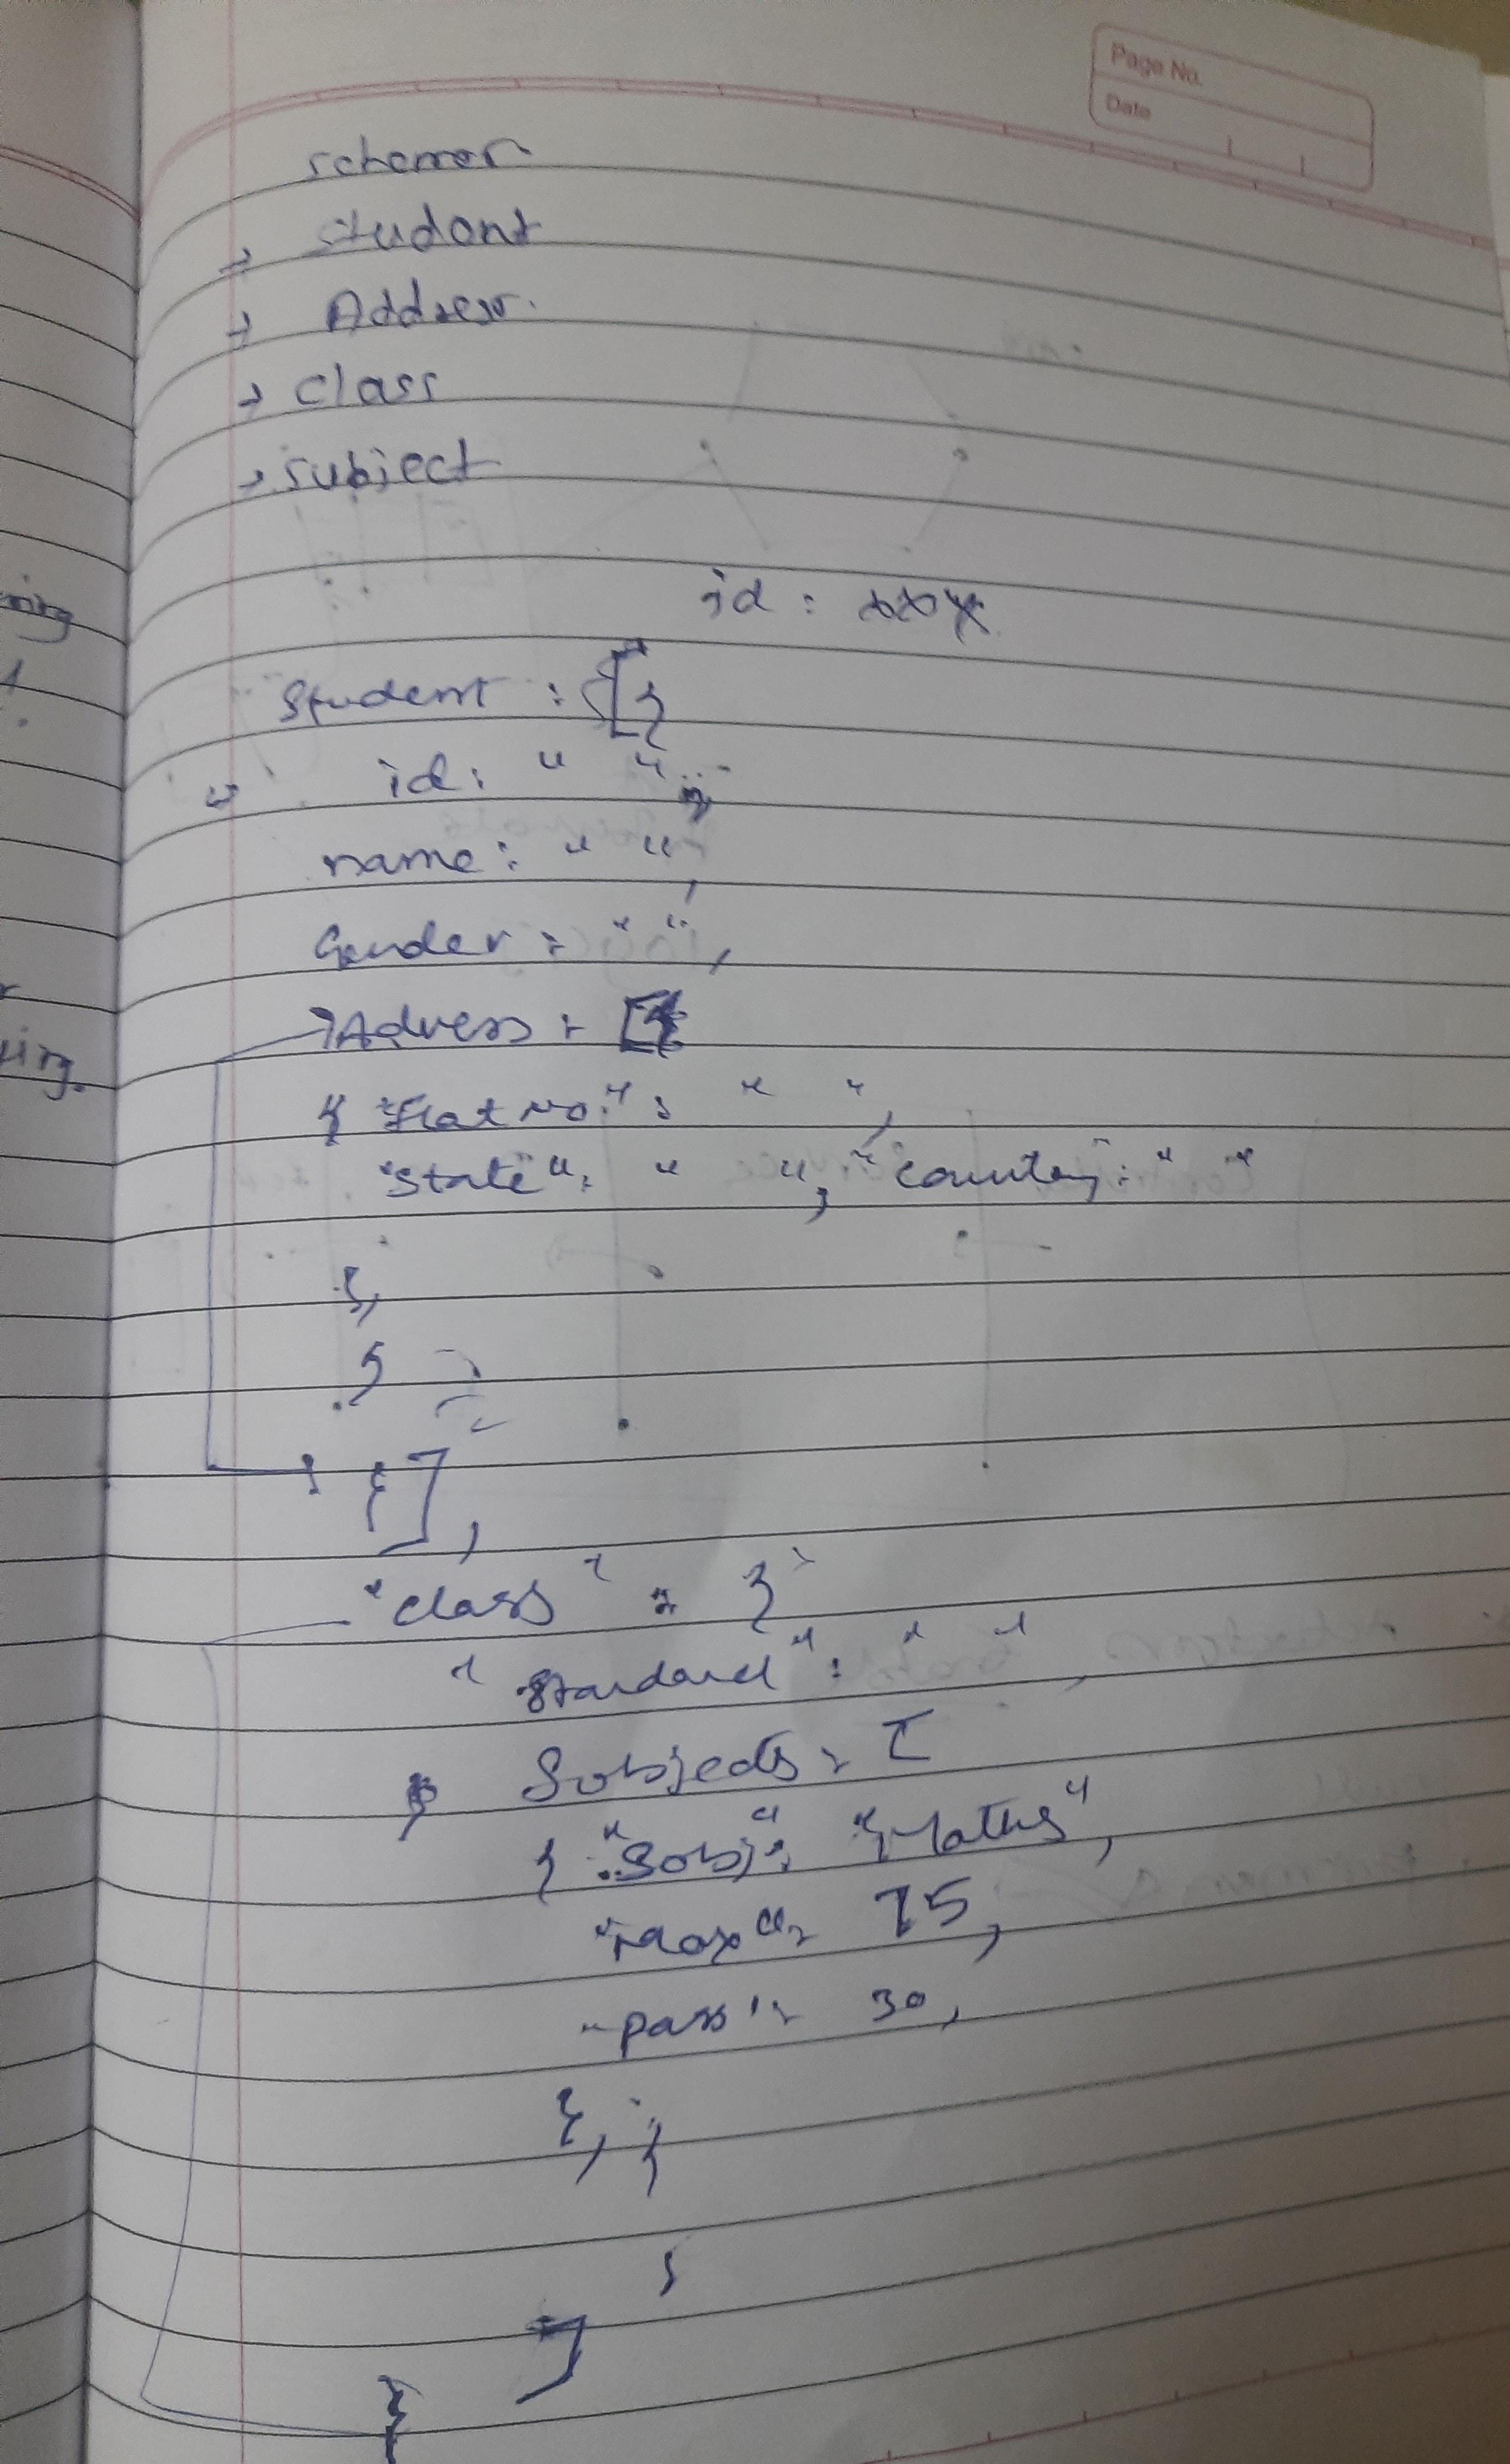 Page No.
Date
schemar
→ student
→ Address.
→ class
→ subject
id : xxx
Student : [{
id : " ",
name : " ",
Gender : " ",
Adress : [
{ "Flat No." : " ",
"State" : " ", "country : " "
},
{
}],
"class" : {
"Standard" : " ",
Subjects : [
{ "Subj" : "Maths",
"Max" : 75,
"pass" : 30,
}, {
}
]
}